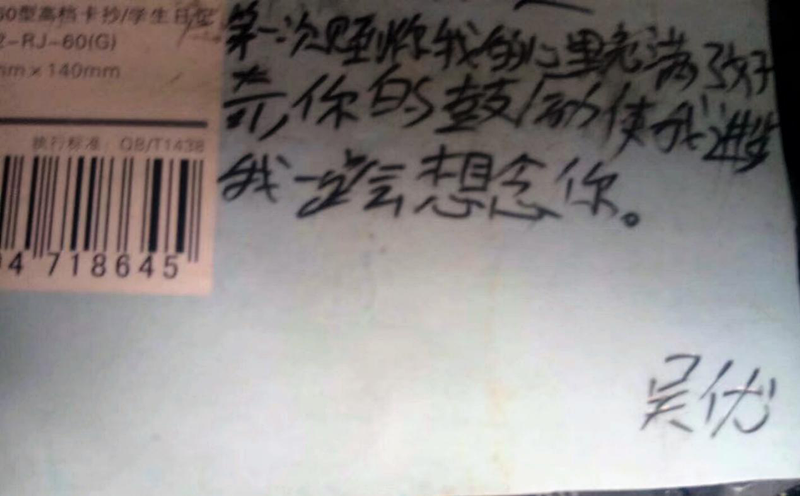 60型高档卡抄/学生日记
2-RJ-60(G)
mm×140mm
执行标准：QB/T1438
4 718645
第一次见到你我的心里充满了好
奇,你的鼓励使我进步
我一定会想念你。
吴优